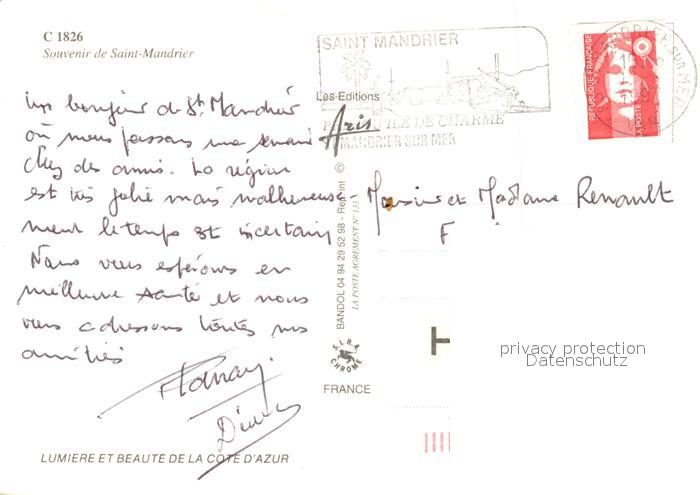 C 1826
Souvenir de Saint-Mandrier
Un bonjour de St Mandrier
où nous passons une semaine
chez des amis. La région
est très jolie mais malheureuse-
ment le temps est incertain
Nous vous espérons en
meilleure santé et nous
vous adressons toutes nos
amitiés
LUMIERE ET BEAUTE DE LA COTE D'AZUR
SAINT MANDRIER
Les Editions
Aris
ILE DE CHARME
MANDRIER SUR MER
REPUBLIQUE FRANÇAISE
LA POSTE
SUR MER
BANDOL 04 94 29 52 98 - Reprint ©
LA POSTE AGREMENT N°
S.I.R.A.
CHROME
FRANCE
Monsieur et Madame Renault
F
privacy protection
Datenschutz